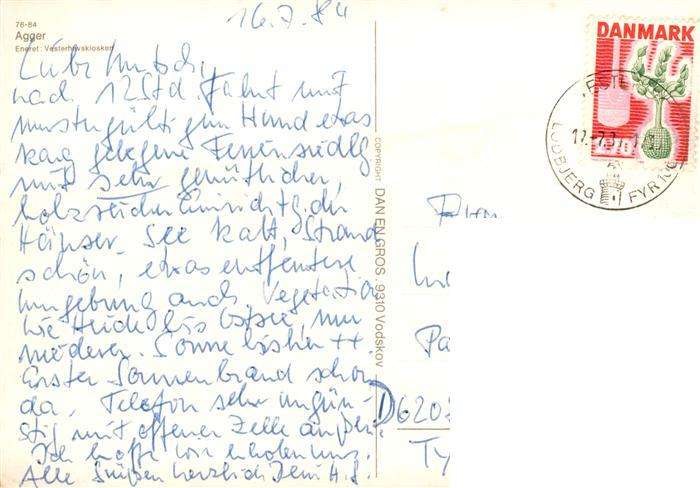 16.7.84
76-84
Agger
Eneret: Vesterhavskiosken
Liebe
nach 12 Std. Fahrt mit
mustergültigem Hund etwas
karg gelegene Feriensiedlg
mit sehr gemütlicher,
holzreicher Einrichtg. der
Häuser. See kalt, Strand
schön, etwas entferntere
Umgebung auch. Vegetation
wie Heide bis Ostsee, nur
niederer. Sonne bisher ++.
Erster Sonnenbrand schon
da, Telefon sehr ungün-
stig mit offener Zelle außen.
Ich hoffe wir erholen uns.
Alle grüßen herzlich Deine H.G.
COPYRIGHT: DAN EN GROS. 9310 Vodskov
DANMARK
VESTE
LODBJERG FYR
Pa
D 620
Ty